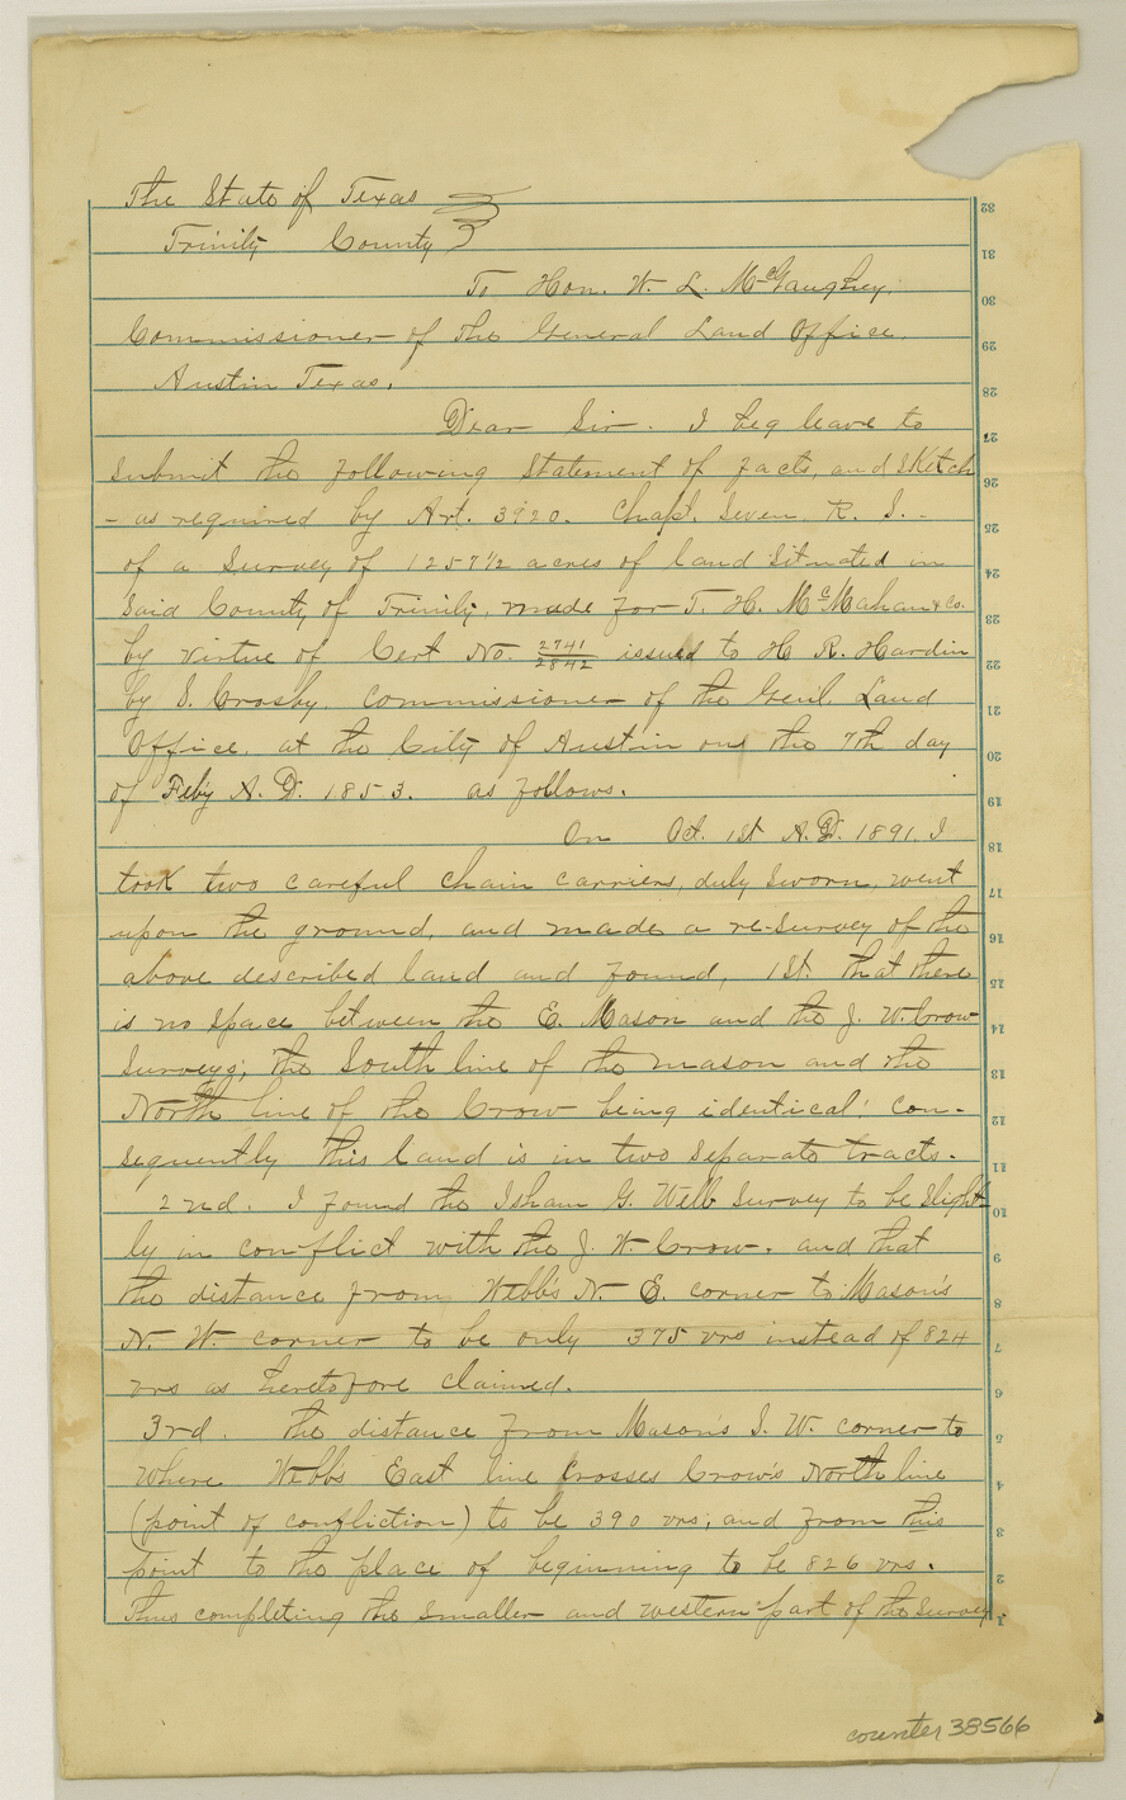 The State of Texas
Trinity County
To Hon. W. L. McGaughey.
Commissioner of the General Land Office.
Austin Texas.
Dear Sir. I beg leave to
submit the following statement of facts, and sketch
- as required by Art. 3920. Chapt. Seven. R. S. -
of a Survey of 1257 1/2 acres of land situated in
said County of Trinity, made for T. H. McMahan & Co.
by virtue of Cert No. 2741/2842 issued to H R. Hardin
by S. Crosby. Commissioner of the Genl. Land
Office, at the City of Austin on the 7th day
of Feby A. D. 1853. as follows.
On Oct. 1st A. D. 1891. I
took two careful chain carriers, duly sworn, went
upon the ground, and made a re-survey of the
above described land and found, 1st. that there
is no space between the E. Mason and the J. W. Crow
Surveys; the South line of the Mason and the
North line of the Crow being identical: con-
sequently this land is in two separate tracts.
2nd. I found the Isham G. Webb Survey to be slight-
ly in conflict with the J. W. Crow. and that
the distance from Webb's N. E. corner to Mason's
N. W. corner to be only 375 vrs instead of 824
vrs as heretofore claimed.
3rd. the distance from Mason's S. W. corner to
where Webb's East line crosses Crow's North line
(point of confliction) to be 390 vrs; and from this
point to the place of beginning to be 826 vrs.
Thus completing the smaller and western part of the Survey
counter 38566
32
31
30
29
28
27
26
25
24
23
22
21
20
19
18
17
16
15
14
13
12
11
10
9
8
7
6
5
4
3
2
1